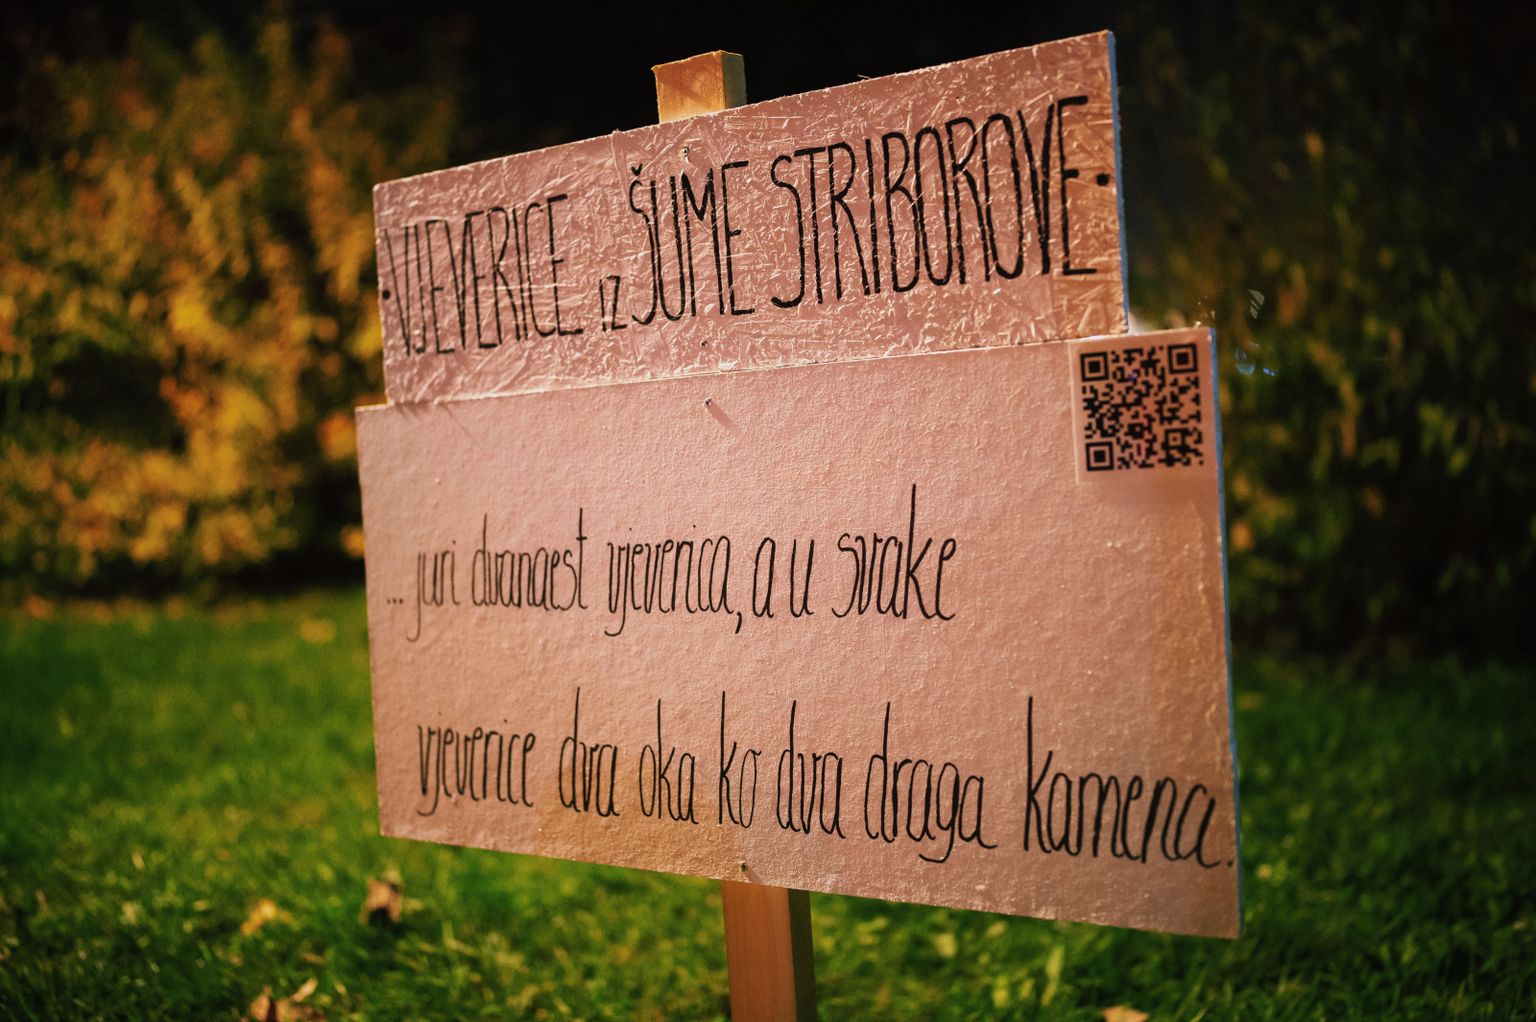 VJEVERICE iz ŠUME STRIBOROVE
... juri dvanaest vjeverica, a u svake
vjeverice dva oka ko dva draga kamena.